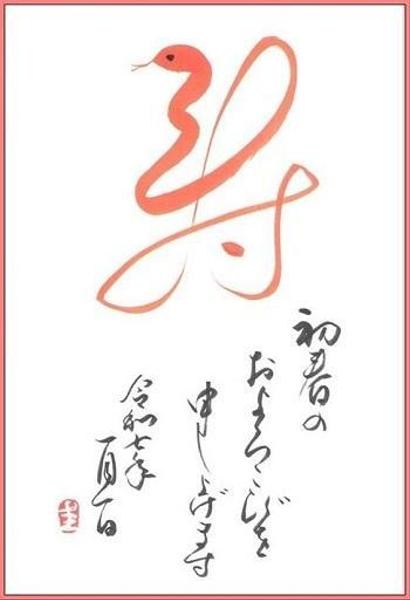 寿
初春の
およろこびを
申し上げます
令和七年
一月一日